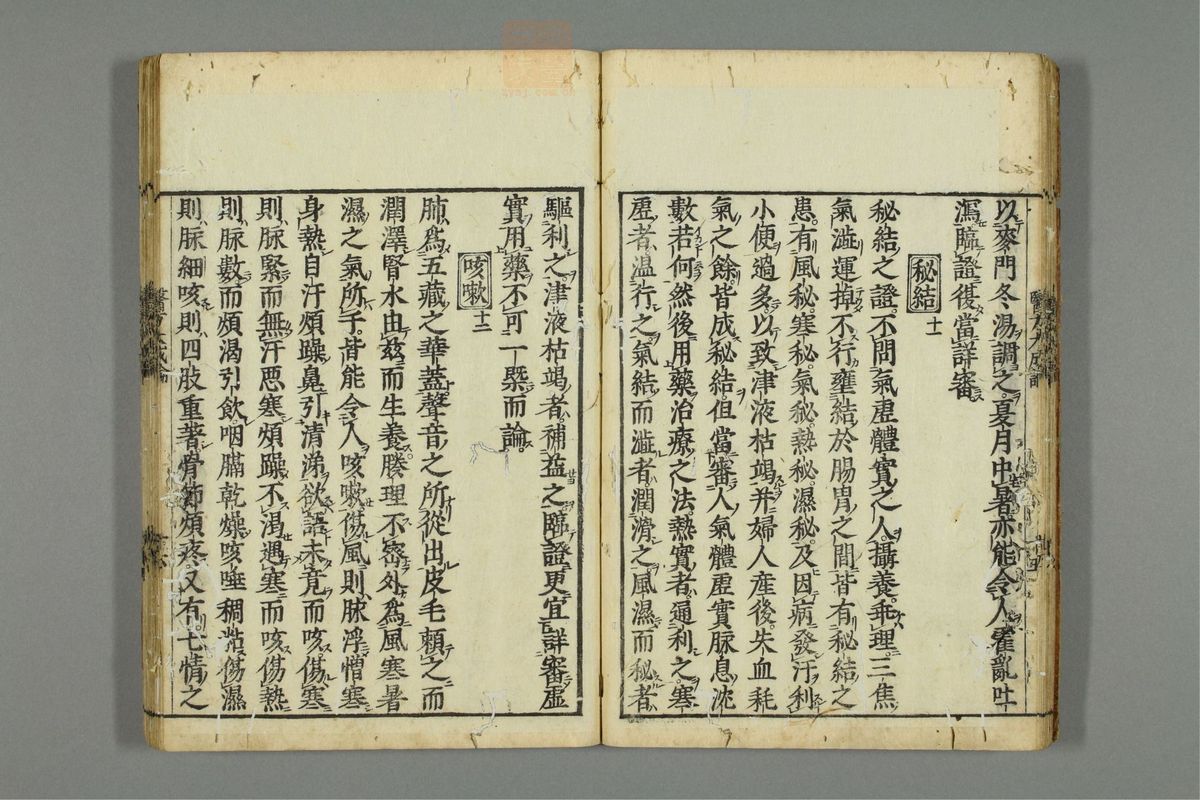 以麥門冬湯調之夏月中暑亦能令人霍亂吐
瀉臨證復當詳審
秘結十一
秘結之證不問氣虛體實之人攝養乖理三焦
氣澁運掉不行壅結於腸胃之間皆有秘結之
患有風秘寒秘氣秘熱秘濕秘及因病發汗利
小便過多以致津液枯竭并婦人産後失血耗
氣之餘皆成秘結但當審人氣體虛實脉息沈
數若何然後用藥治療之法熱實者通利之寒
虛者温行之氣結而澁者潤滑之風濕而秘者
驅利之津液枯竭者補益之臨證更宜詳審虛
實用藥不可一槩而論
咳嗽十二
肺爲五藏之華蓋聲音之所從出皮毛頼之而
潤澤腎水由茲而生養腠理不密外爲風寒暑
濕之氣所干皆能令人咳嗽傷風則脉浮憎寒
身熱自汗煩躁鼻引清涕欲語未竟而咳傷寒
則脉緊而無汗惡寒煩躁不渇遇寒而咳傷熱
則脉數而煩渇引飲咽膈乾燥咳唾稠粘傷濕
則脉細咳則四肢重著骨節煩疼又有七情之